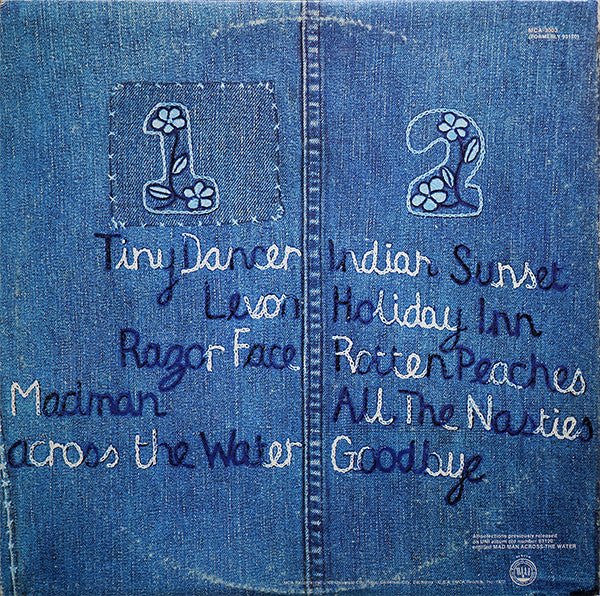 MCA-3003
(FORMERLY 93120)
1
Tiny Dancer
Levon
Razor Face
Madman
across the Water
2
Indian Sunset
Holiday Inn
Rotten Peaches
All The Nasties
Goodbye
All selections previously released
on UNI album old number 93120
entitled MAD MAN ACROSS THE WATER